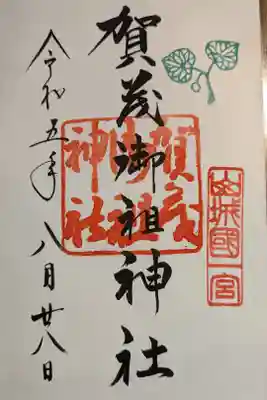 山城國一宮
賀茂御祖神社
賀茂御祖神社
令和五年八月廿八日